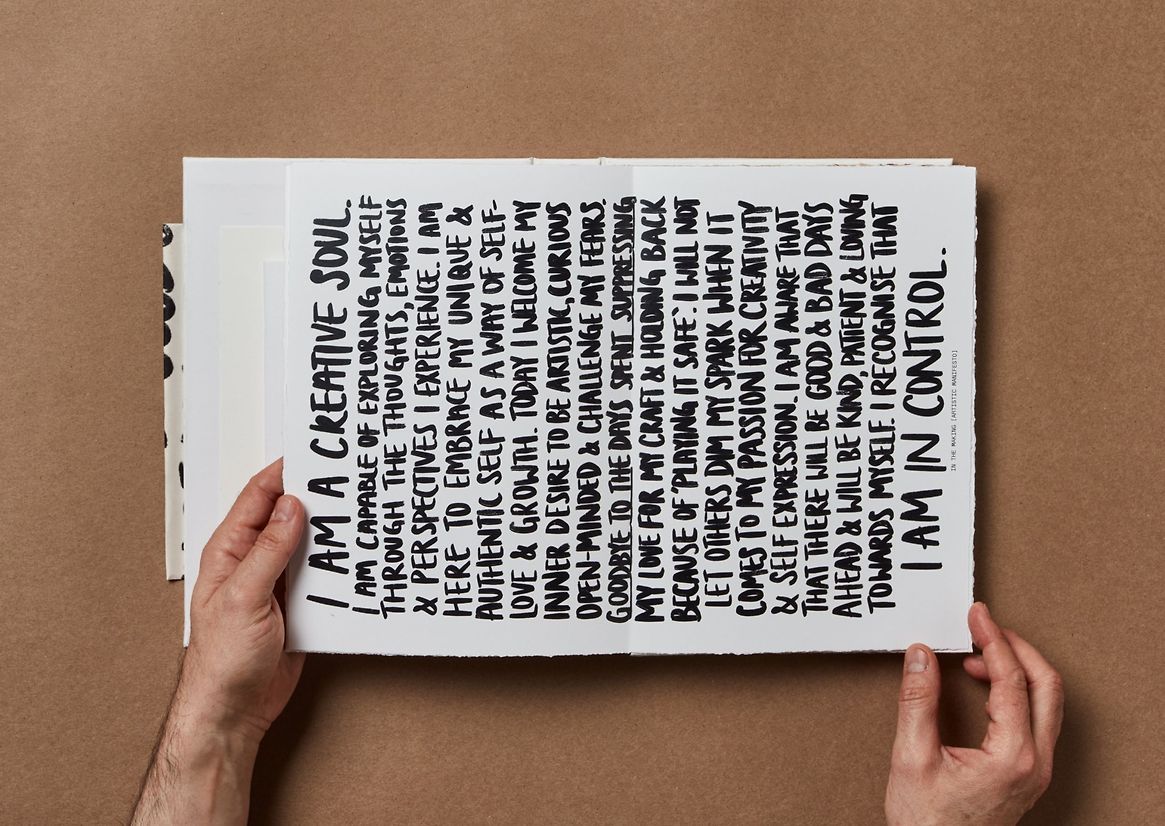 I AM A CREATIVE SOUL.
I AM CAPABLE OF EXPLORING MYSELF
THROUGH THE THOUGHTS, EMOTIONS
& PERSPECTIVES I EXPERIENCE. I AM
HERE TO EMBRACE MY UNIQUE &
AUTHENTIC SELF AS A WAY OF SELF-
LOVE & GROWTH. TODAY I WELCOME MY
INNER DESIRE TO BE ARTISTIC, CURIOUS
OPEN-MINDED & CHALLENGE MY FEARS.
GOODBYE TO THE DAYS SPENT SUPPRESSING
MY LOVE FOR MY CRAFT & HOLDING BACK
BECAUSE OF 'PLAYING IT SAFE'. I WILL NOT
LET OTHERS DIM MY SPARK WHEN IT
COMES TO MY PASSION FOR CREATIVITY
& SELF EXPRESSION. I AM AWARE THAT
THAT THERE WILL BE GOOD & BAD DAYS
AHEAD & WILL BE KIND, PATIENT & LOVING
TOWARDS MYSELF. I RECOGNISE THAT
I AM IN CONTROL.
IN THE MAKING [ARTISTIC MANIFESTO]